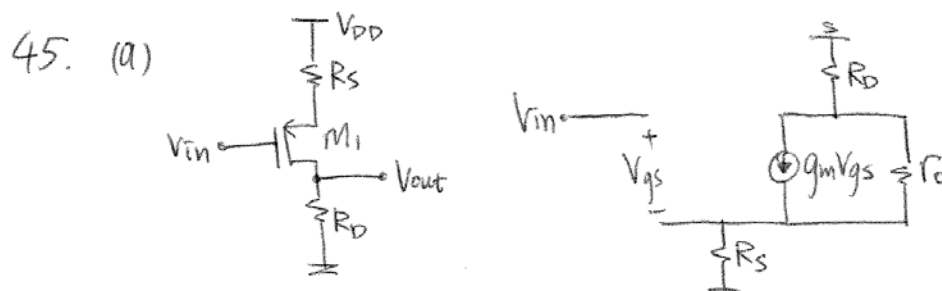 45. (a)
VDD
RS
Vin
M1
Vout
RD
S
RD
Vin
+
Vgs
−
gmVgs
ro
RS